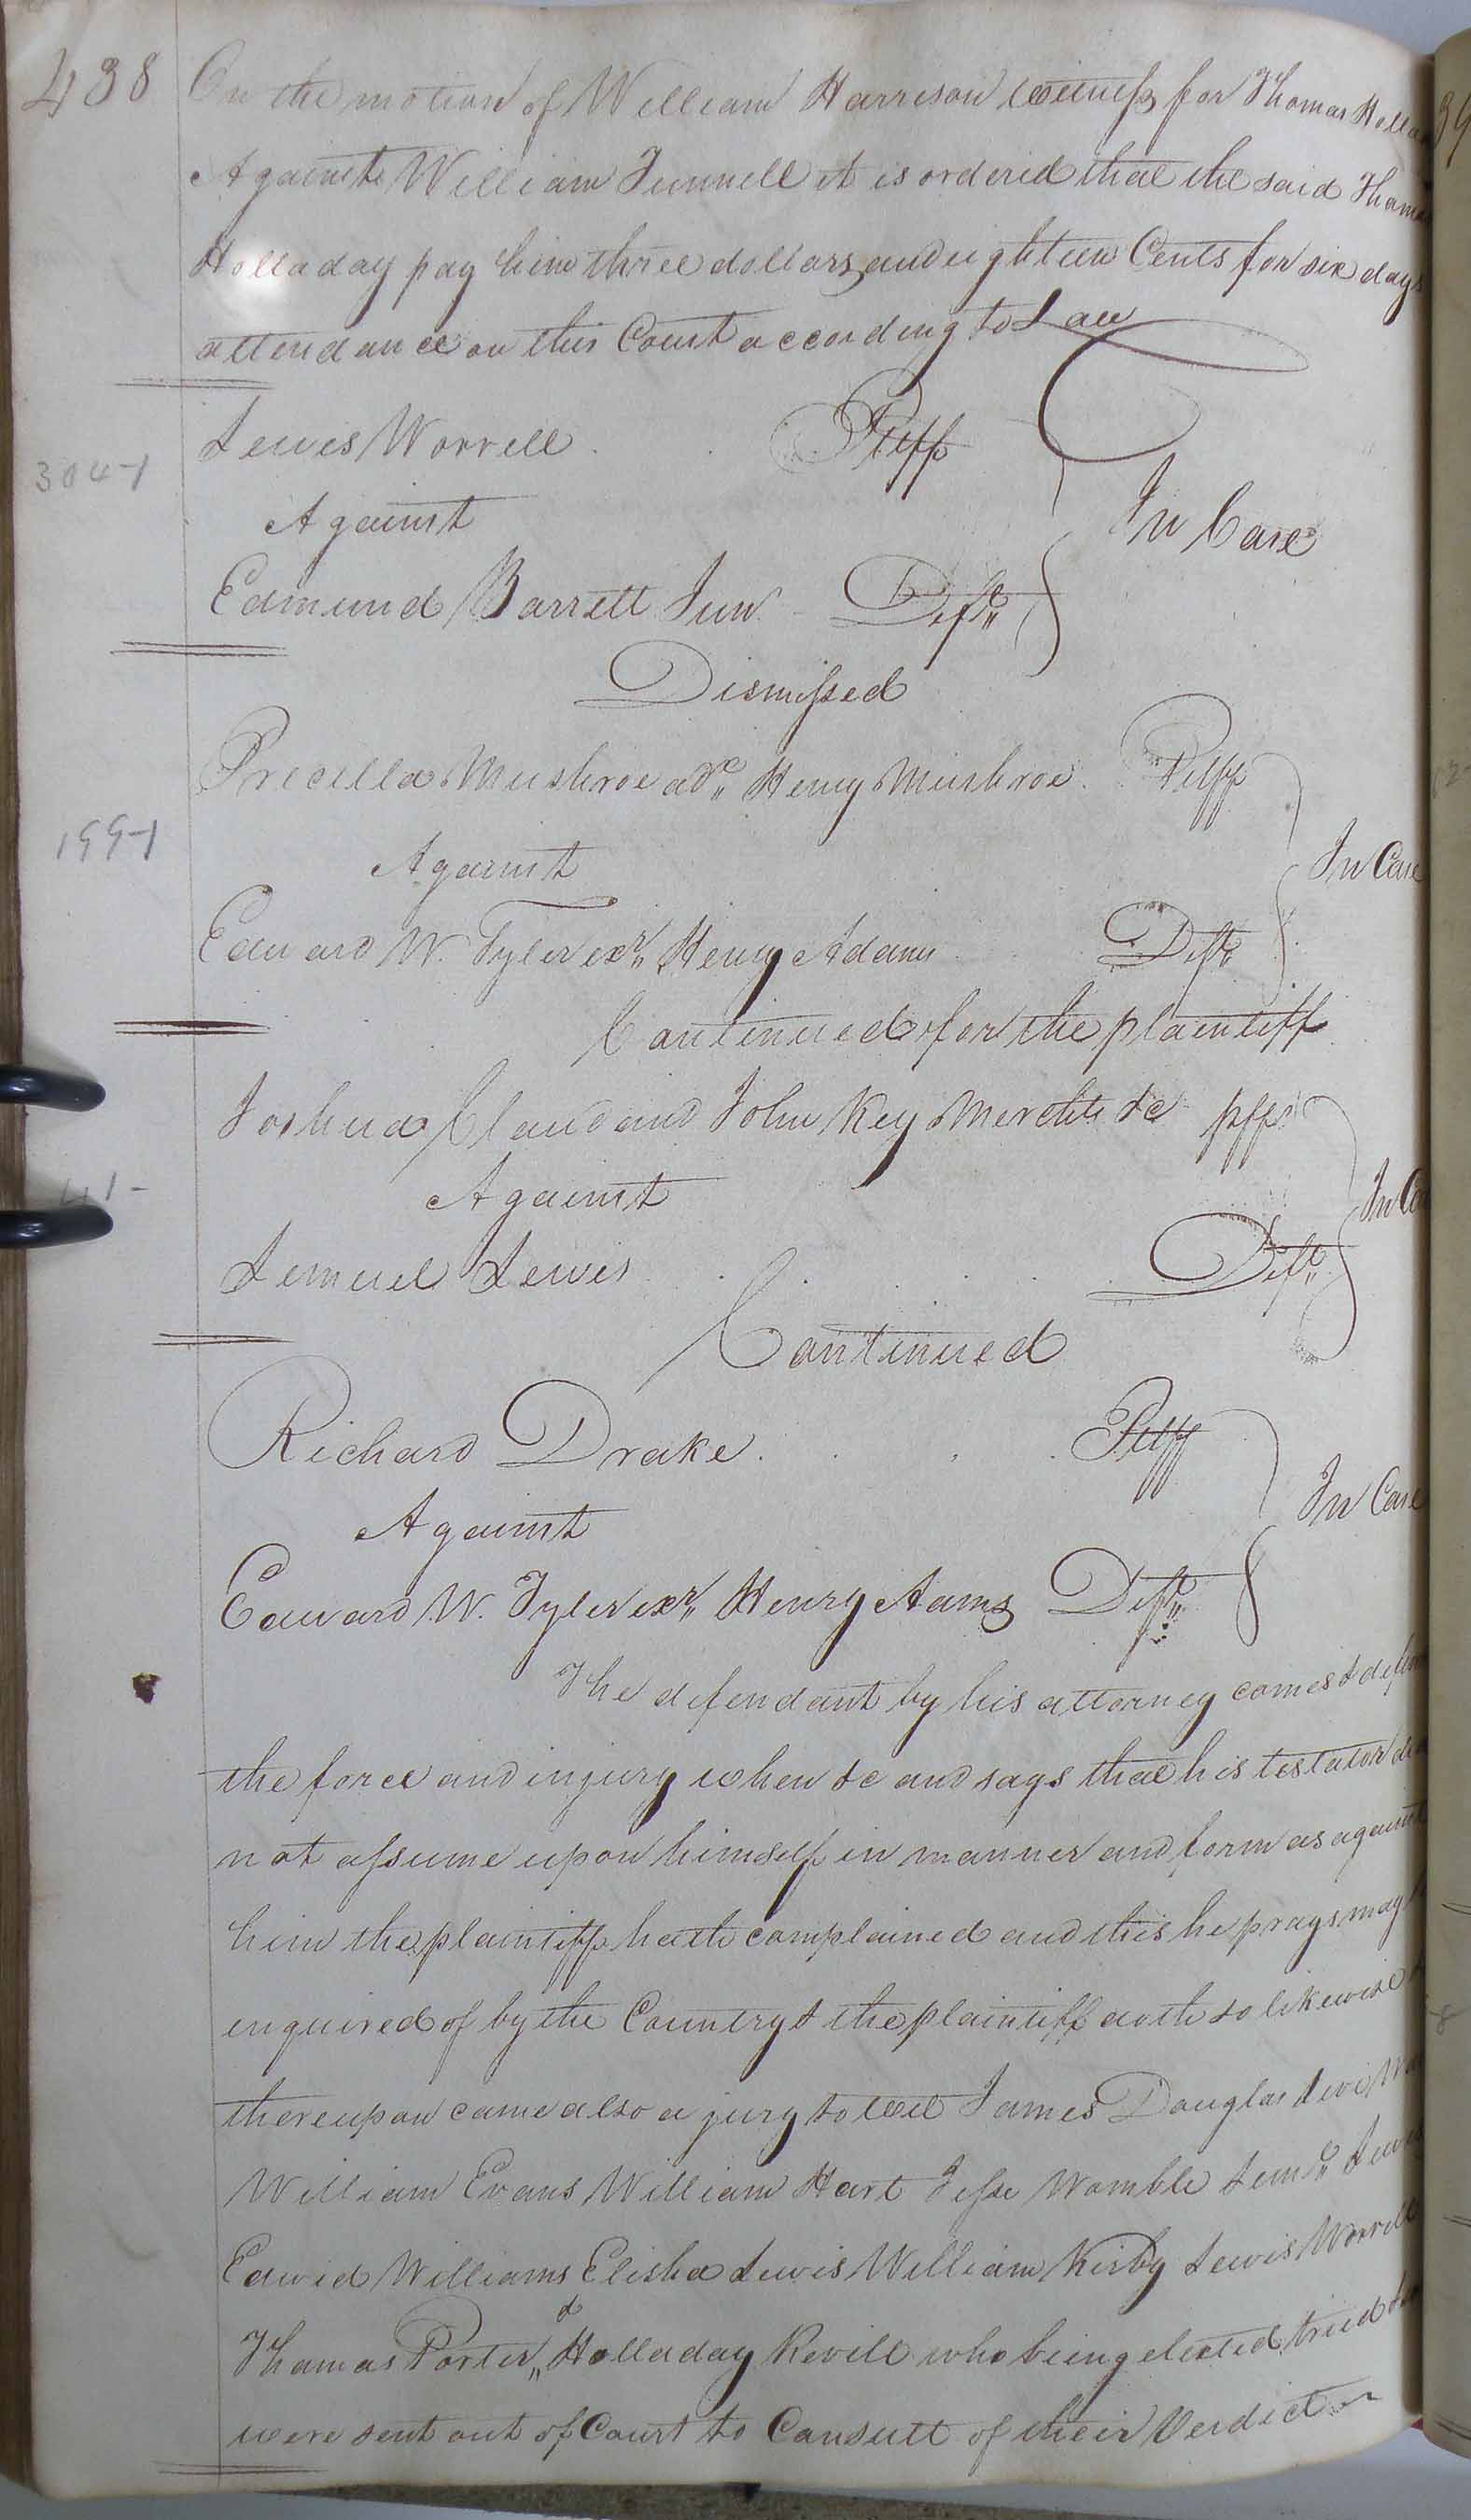 438
On the motion of William Harrison witness for Thomas Holla
Against William Junnell it is ordered that the said Thomas
Holladay pay him three dollars and eighteen Cents for six days
attendance on this Court according to Law
Lewis Worrell Pltff
304-1
Against In Case
Edmund Barrett Junr Deft
Dismissed
Precilla Mushroe adx Henry Mushroe Pltff
199-1
Against In Case
Edward W. Tyler exr Henry Adams Deft
Continued for the plaintiff
Joshua Claud and John Key Merchts &c pffs
41-
Against In Ca
Lemuel Lewis Deft
Continued
Richard Drake Pltff
Against In Case
Edward W. Tyler exr Henry Aams Deft
The defendant by his attorney comes & defen
the force and injury when &c and says that his testator di
not assume upon himself in manner and form as against
him the plaintiff hath complained and this he prays may
enquired of by the Country & the plaintiff doth so likewise
thereupon came also a jury to wit James Douglas
William Evans William Hart Jesse Womble Leml Lewis
Edwid Williams Elisha Lewis William Kirby Lewis Worrell
Thomas Porter & Holladay Revill who being elected tried &
were sent out of Court to Consult of their Verdict